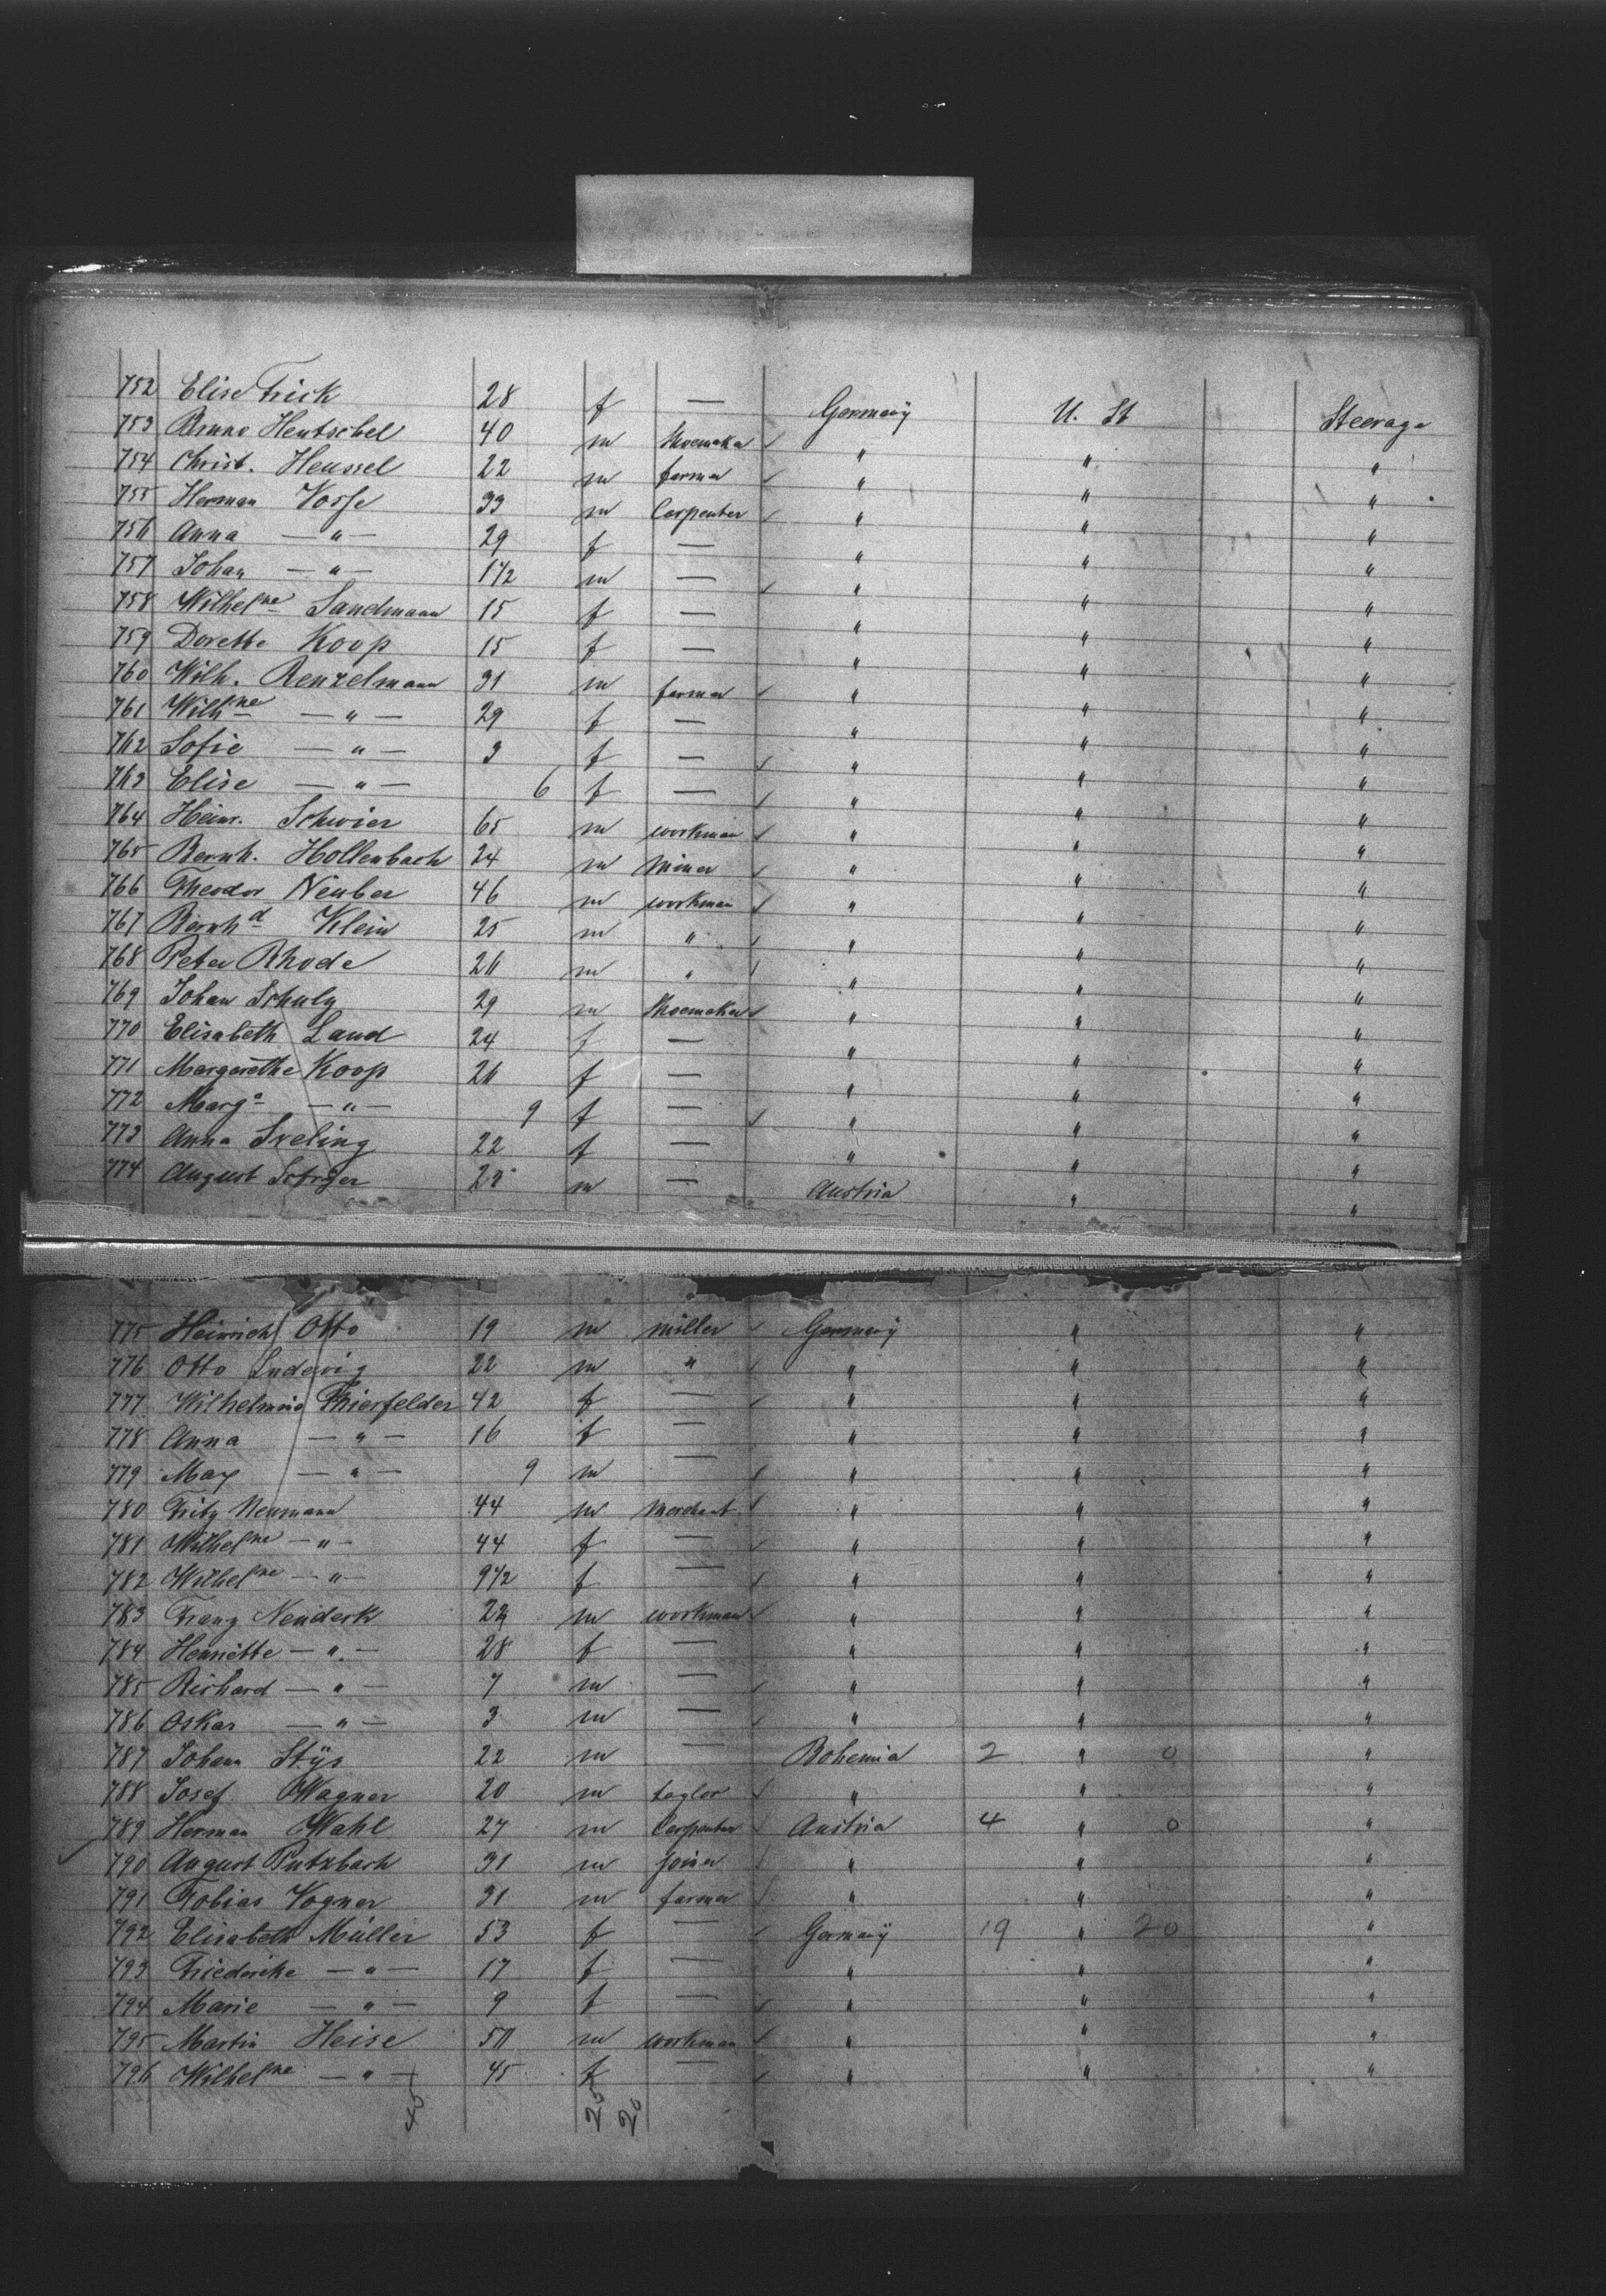 752 Elise Frick 28 f — Germany U. St Steerage
753 Bruno Hentschel 40 m Shoemaker " " "
754 Christ. Heussel 22 m farmer " " "
755 Herman Vosse 33 m Carpenter " " "
756 Anna — " — 29 f — " " "
757 Johan — " — 1 1/2 m — " " "
758 Wilhelne Sandmann 15 f — " " "
759 Dorette Koop 15 f — " " "
760 Wilh. Renzelmann 31 m farmer " " "
761 Wilhne — " — 29 f — " " "
762 Sofie — " — 3 f — " " "
763 Elise — " — 6 f — " " "
764 Heinr. Schwier 65 m workman " " "
765 Bernh. Hollenbach 24 m Miner " " "
766 Theodor Neuber 46 m workman " " "
767 Bernhd Klein 25 m " " " "
768 Peter Rhode 26 m " " " "
769 Johan Schulz 29 m Shoemaker " " "
770 Elisabeth Land 24 f — " " "
771 Margarethe Koop 26 f — " " "
772 Marga — " — 9 f — " " "
773 Anna 22 f — " " "
774 August m — Austria " "
775 Heinrich Otto 19 m miller Germany " "
776 Otto Ludewig 22 m " " " "
777 Wilhelmine Thierfelder 42 f — " " "
778 Anna — " — 16 f — " " "
779 Max — " — 9 m — " " "
780 Fritz Neumann 44 m Merchant " " "
781 Wilhelne — " — 44 f — " " "
782 Wilhelne — " — 9 1/2 f — " " "
783 Franz Neuderk m workman " " "
784 Henriette — " — 28 f — " " "
785 Richard — " — 7 m — " " "
786 Oskar — " — 3 m — " " "
787 Johann Stÿs 22 m — Bohemia 2 " 0 "
788 Josef Wagner 20 m taylor " " "
789 Herman Wahl 27 m Carpenter Austria 4 " 0 "
790 August Putzbach 31 m joiner " " "
791 Tobias Vogner 31 m farmer " " "
792 Elisabeth Müller 53 f — Germany 19 " 20 "
793 Friederike — " — 17 f — " " "
794 Marie — " — 9 f — " " "
795 Martin Heise 56 m workman " " "
796 Wilhelne — " — 45 f — " " "
45 25 20